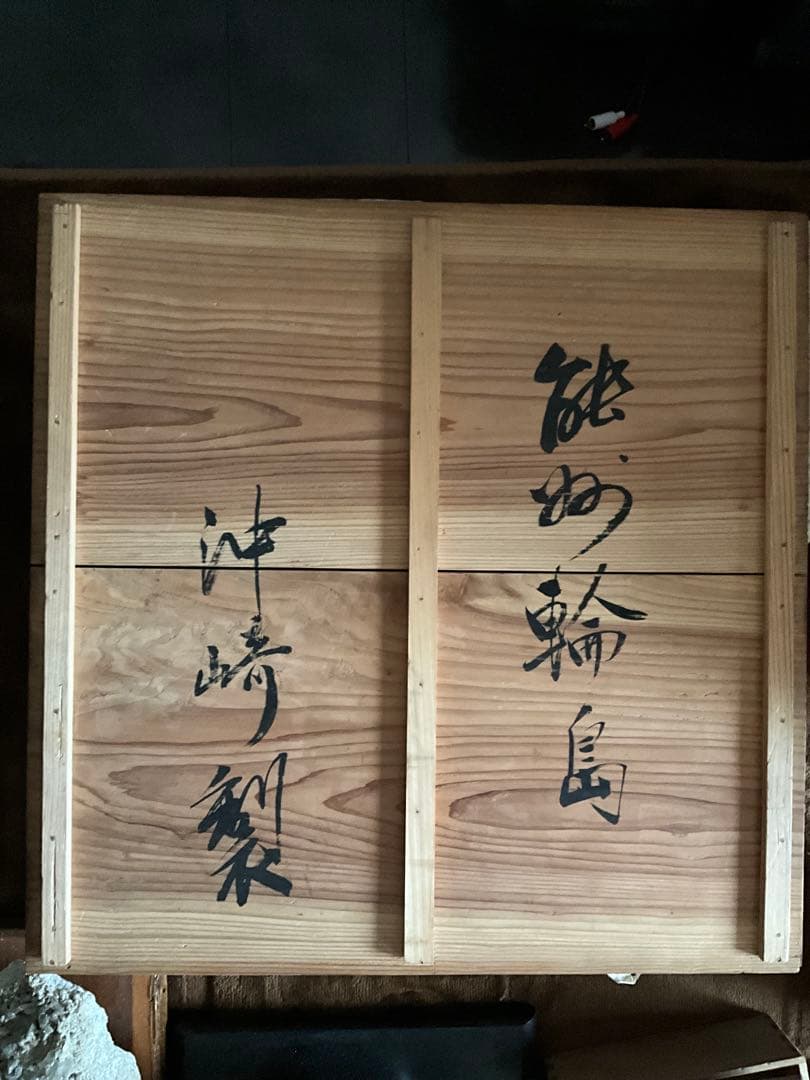 能州輪島
沖崎製